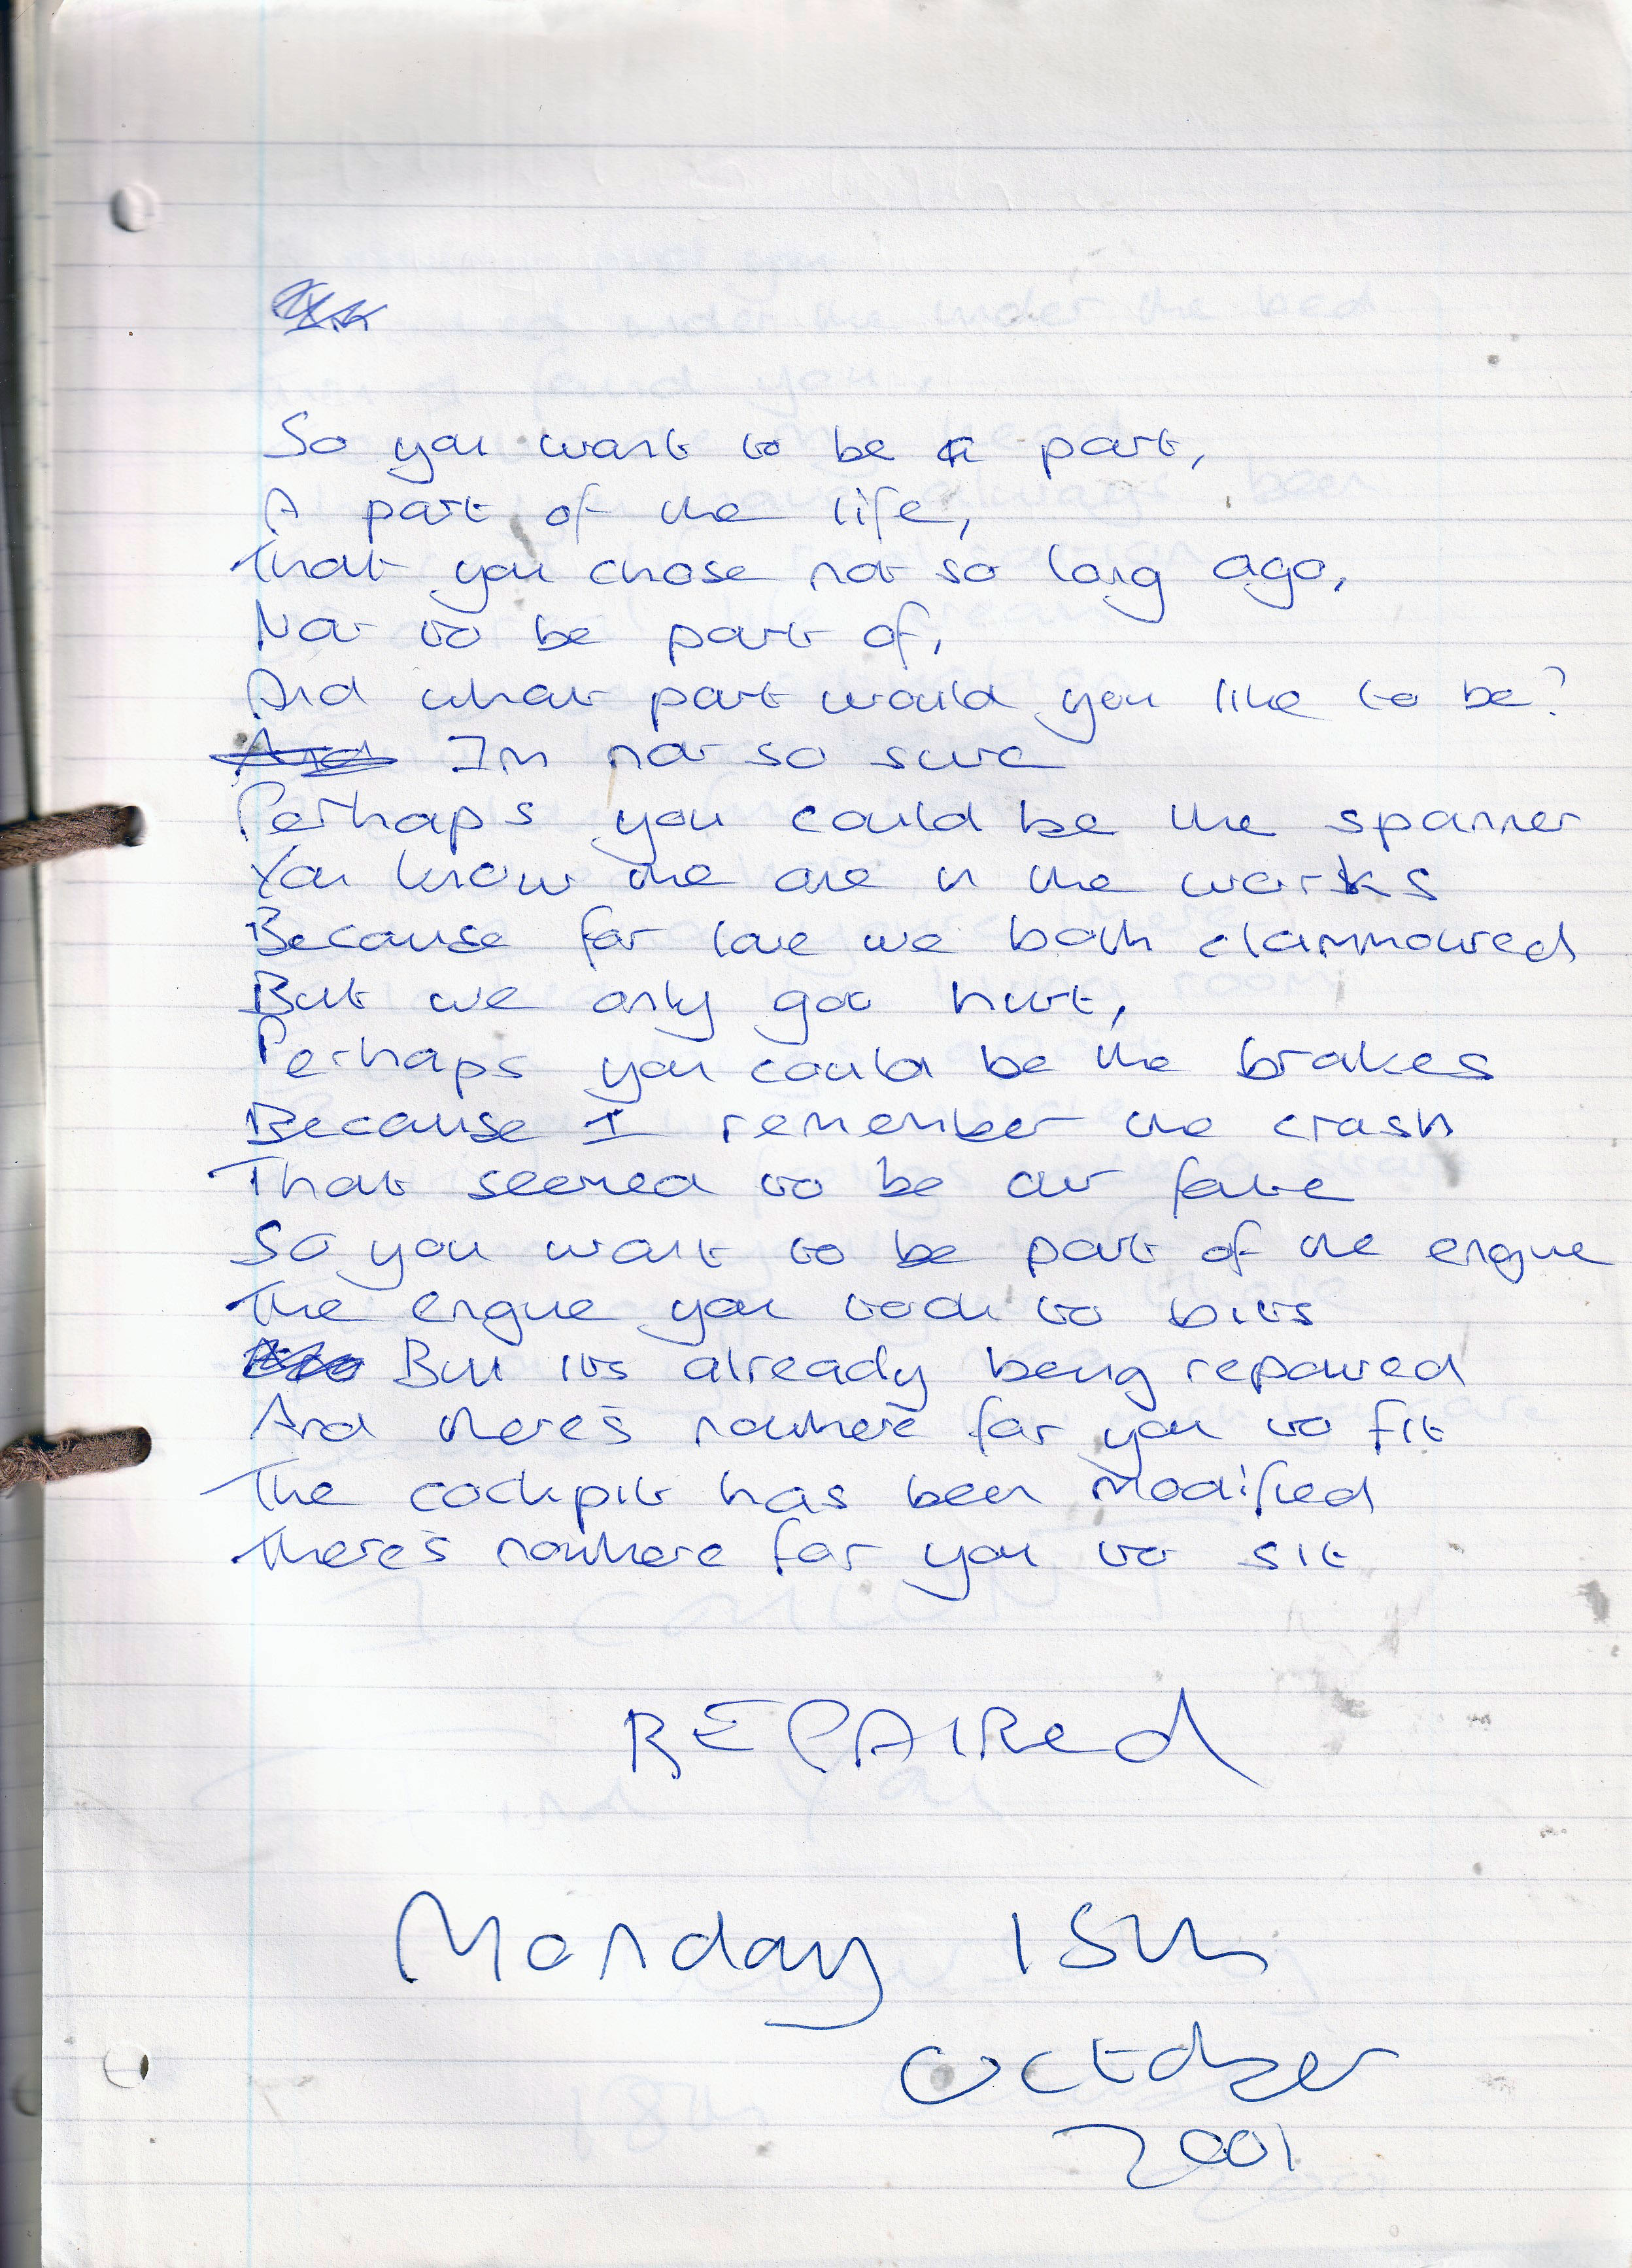 So you want to be a part,
A part of the life,
That you chose not so long ago,
Not to be part of,
And what part would you like to be?
And Im not so sure
Perhaps you could be the spanner
You know the one in the works
Because for love we both clammoured
But we only got hurt,
Perhaps you could be the brakes
Because I remember the crash
That seemed to be our fate
So you want to be part of the engine
The engine you took to bits
But its already being repaired
And there's nowhere for you to fit
The cockpit has been modified
There's nowhere for you to sit
REPAIRed
Monday 15th
October
2001